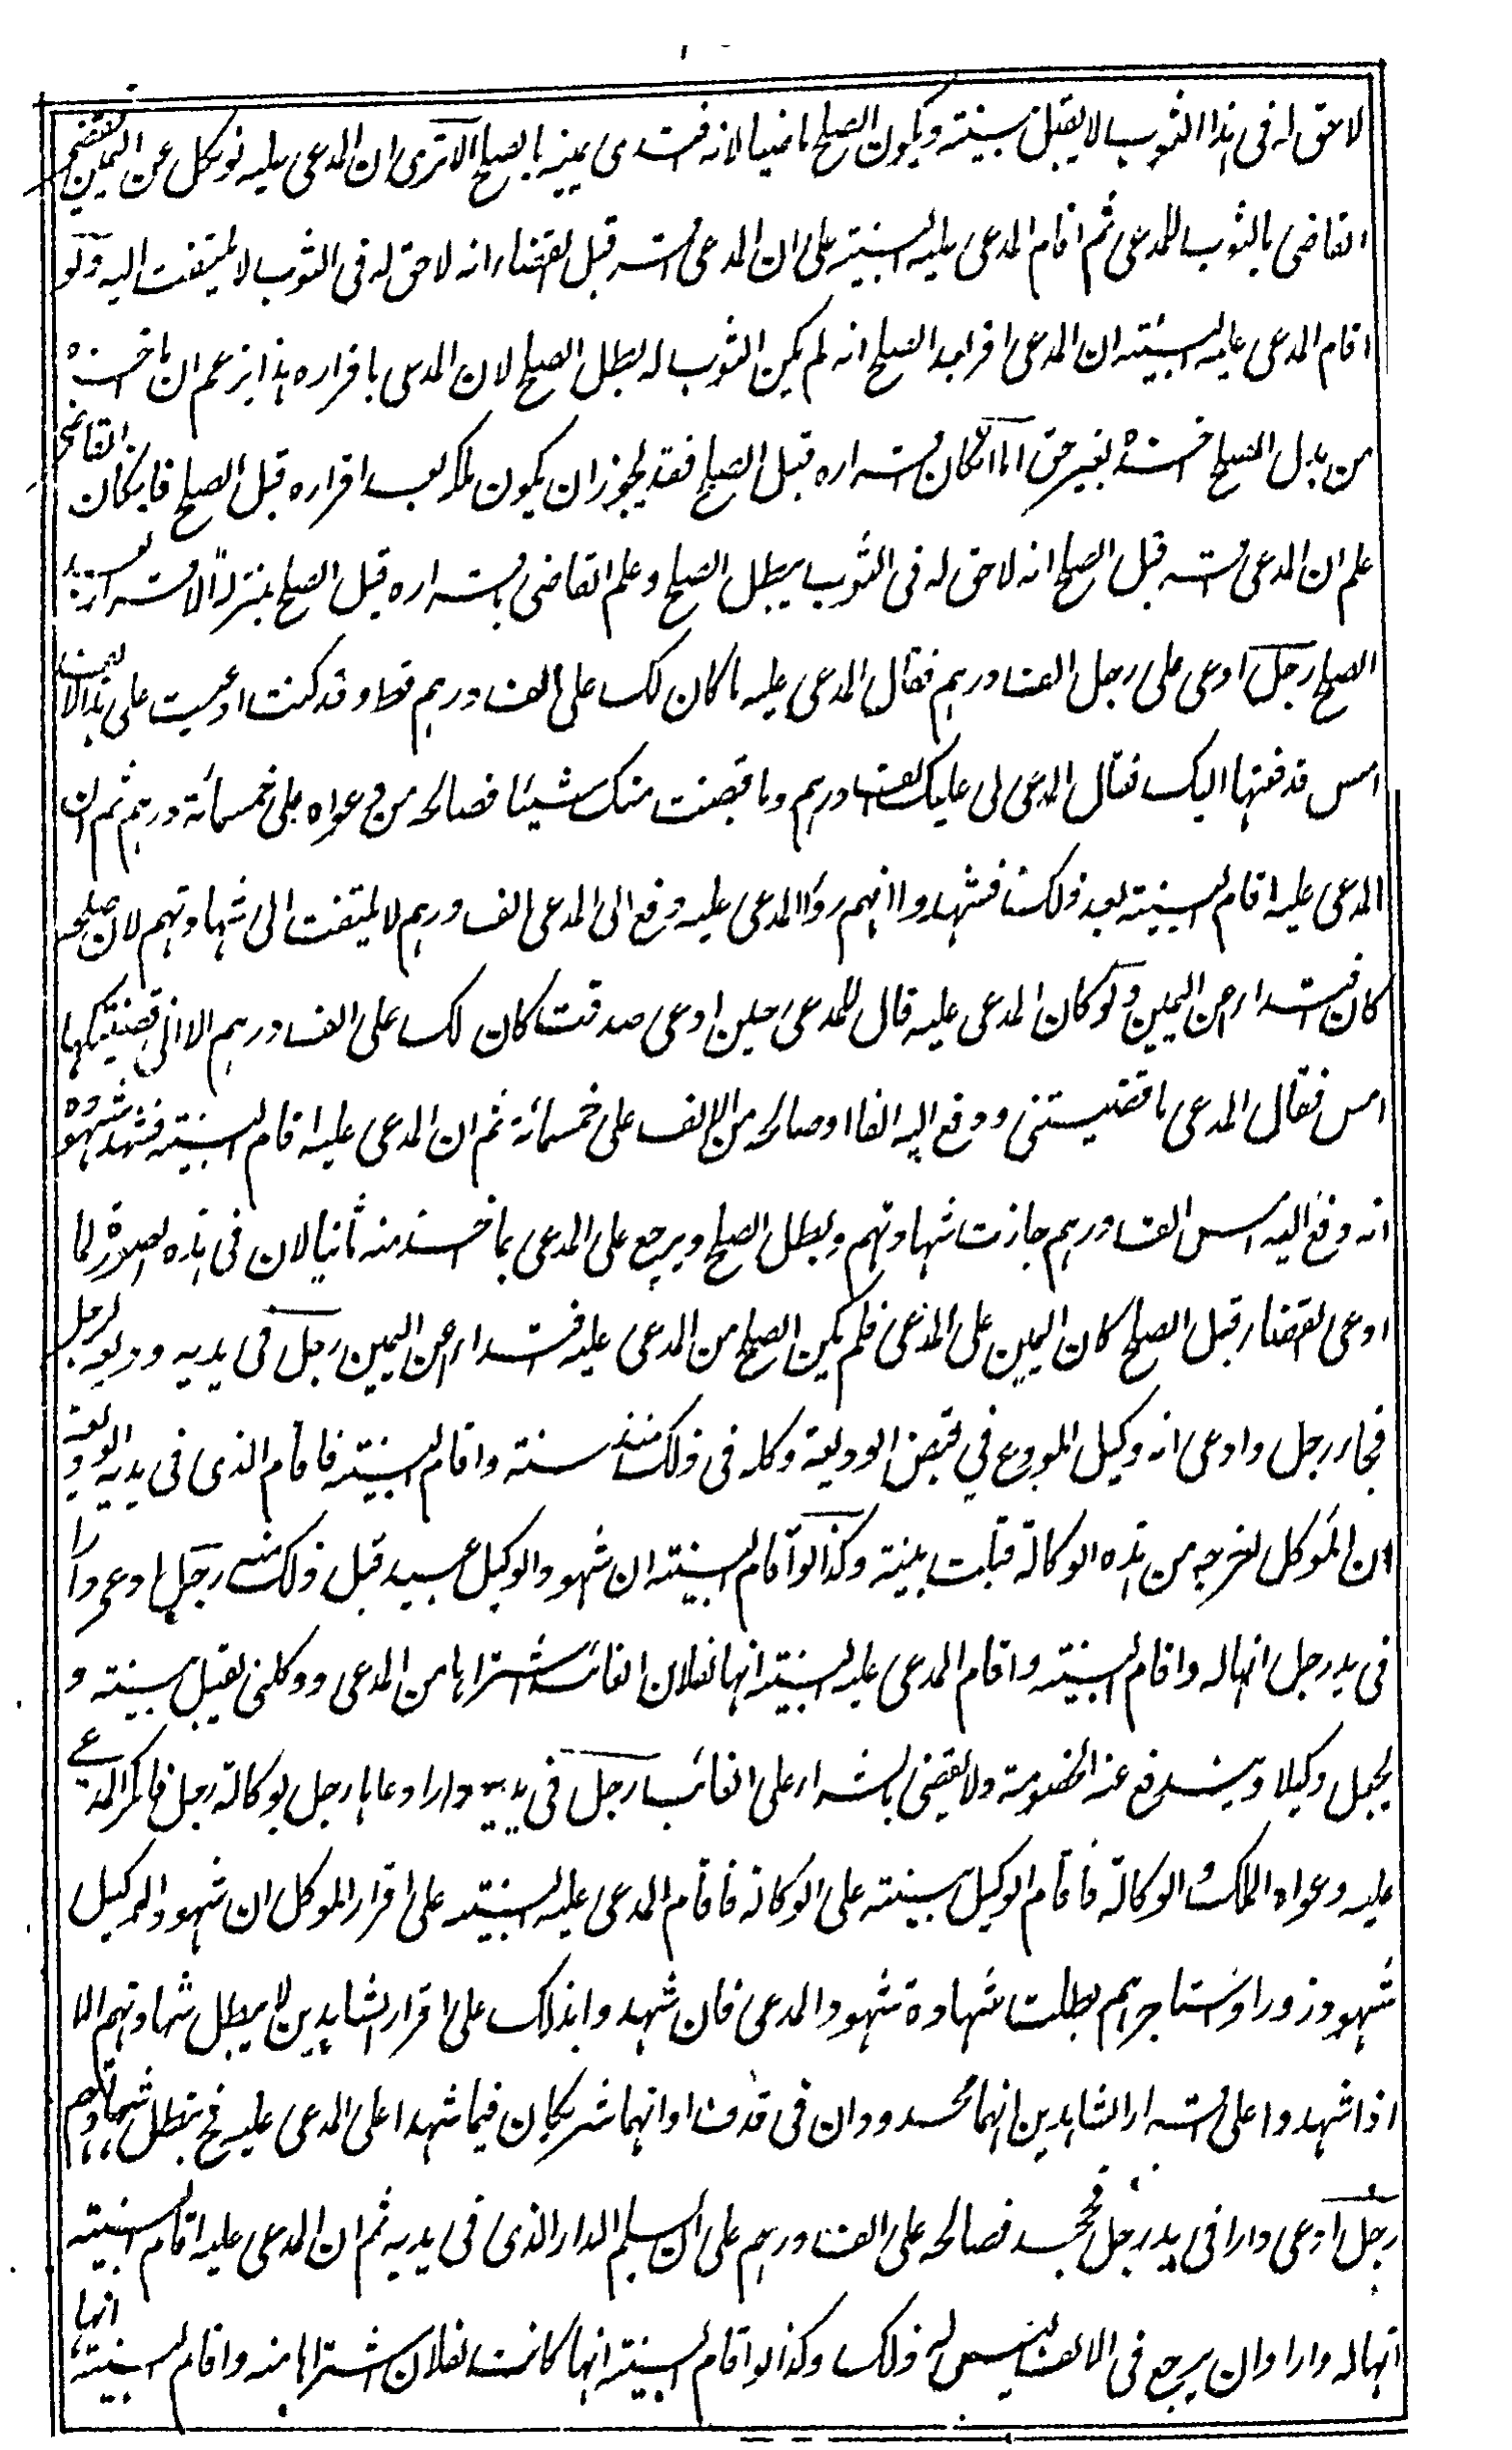 لا حق له فى هذا الثوب لا يقبل بينته ويكون الصلح ماضيا لانه فتدى يمينه بالصلح الا ترى ان المدعى عليه لو نكل عن اليمين فقضى
القاضى بالثوب للمدعى ثم اقام المدعى عليه البينة على ان المدعى اقر قبل القضاء انه لا حق له فى الثوب لا يلتفت اليه ولو
اقام المدعى عليه البينة ان المدعى اقر بعد الصلح انه لم يكن الثوب له بطل الصلح لان المدعى باقراره هذا يزعم ان ما اخذه
من بدل الصلح اخذه بغير حق اما اذا كان اقراره قبل الصلح فقد يجوز ان يكون ملكه بعد اقراره قبل الصلح فان كان القاضى
علم ان المدعى اقر قبل الصلح انه لا حق له فى الثوب يبطل الصلح وعلم القاضى باقراره قبل الصلح بمنزلة الاقرار بعد
الصلح رجل ادعى على رجل الف درهم فقال المدعى عليه ما كان لك على الف درهم قط وقد كنت ادعيت على هذا الالف
امس فدفعتها اليك فقال المدعى لى عليك الف درهم وما قبضت منك شيئا فصالحه من دعواه على خمسمائة درهم ثم ان
المدعى عليه اقام البينة بعد ذلك فشهدوا انهم رأوا المدعى عليه دفع الى المدعى الف درهم لا يلتفت الى شهادتهم لان صلحه
كان فداء عن اليمين ولو كان المدعى عليه قال للمدعى حين ادعى صدقت كان لك على الف درهم الا انى قضيتكها
امس فقال المدعى ما قضيتنى ودفع اليه الفا او صالحه من الالف على خمسمائة ثم ان المدعى عليه اقام البينة فشهد شهوده
انه دفع اليه امس الف درهم جازت شهادتهم وبطل الصلح ويرجع على المدعى بما اخذ منه ثانيا لان فى هذه الصورة لما
ادعى القضاء قبل الصلح كان اليمين على المدعى فلم يكن الصلح من المدعى عليه فداء عن اليمين رجل فى يديه وديعة لرجل
فجاء رجل وادعى انه وكيل المودع في قبض الوديعة وكله فى ذلك منذ سنة واقام البينة فاقام الذى فى يديه الوديعة
ان الموكل اخرجه من هذه الوكالة قبلت بينته وكذا لو اقام البينة ان شهود الوكيل عبيد قبل ذلك منه رجل ادعى دارا
فى يد رجل انها له واقام البينة واقام المدعى عليه البينة انها لفلان الغائب اشتراها من المدعى ووكلنى يقبل بينته و
يجعل وكيلا ويندفع عنه الخصومة ولا يقضى بالشراء على الغائب رجل فى يديه دار ادعاها رجل بوكالة رجل فانكر المدعى
عليه دعواه الملك والوكالة فاقام الوكيل بينته على الوكالة فاقام المدعى عليه البينة على اقرار الموكل ان شهود الوكيل
شهود زور او استاجرهم بطلت شهادة شهود المدعى فان شهدوا بذلك على اقرار الشاهدين لا يبطل شهادتهم الا
اذا شهدوا على اقرار الشاهدين انهما محدودان فى قذف او انهما شريكان فيما شهدا على المدعى عليه فح تبطل شهادتهم
رجل ادعى دارا فى يد رجل فجحد فصالحه على الف درهم على ان يسلم الدار الذى فى يديه ثم ان المدعى عليه اقام البينة
انها له واراد ان يرجع فى الالف ليس له ذلك وكذا لو اقام البينة انها كانت لفلان اشتراها منه واقام البينة انها